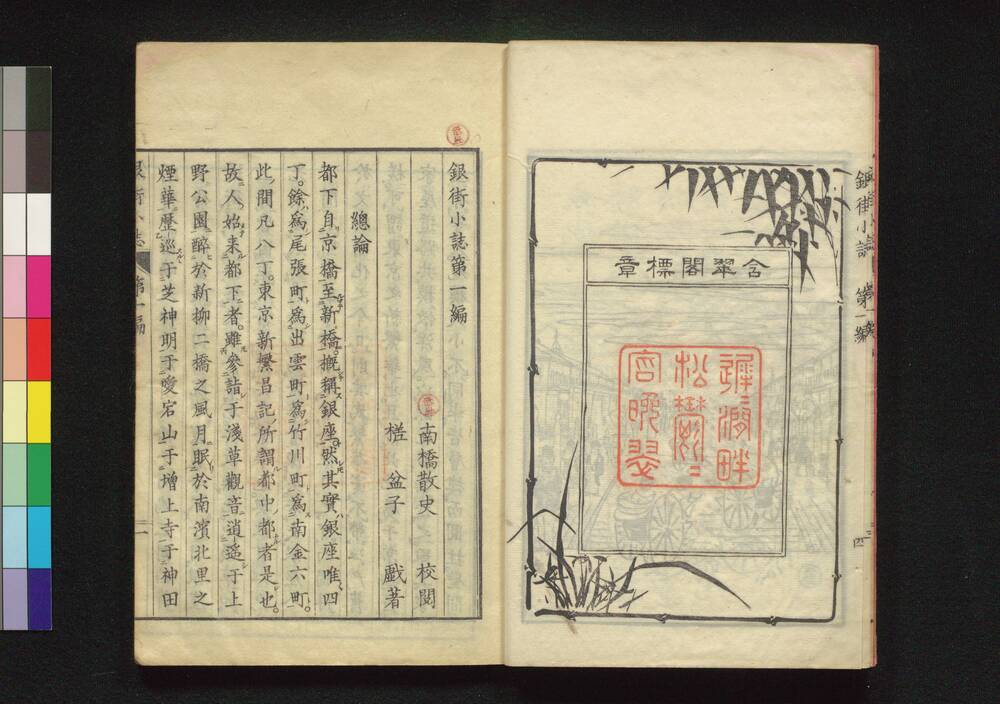 銀街小誌 第一編
含翠閣標章
遲遲澗畔
松鬱鬱
含晩翠
銀街小誌第一編
南橋散史 校閲
槎盆子 戲著
總論
都下自京橋至新橋。概稱銀座。然其實銀座唯四
丁。餘爲尾張町。爲出雲町。爲竹川町。爲南金六町。
此間凡八丁。東京新繁昌記所謂都中都者是也。
故人始来都下者。雖參詣于淺草觀音。逍遥于上
野公園。醉於新柳二橋之風月。眠於南濱北里之
煙華。歴巡于芝神明于愛宕山于增上寺于神田
銀街小誌 第一編 一